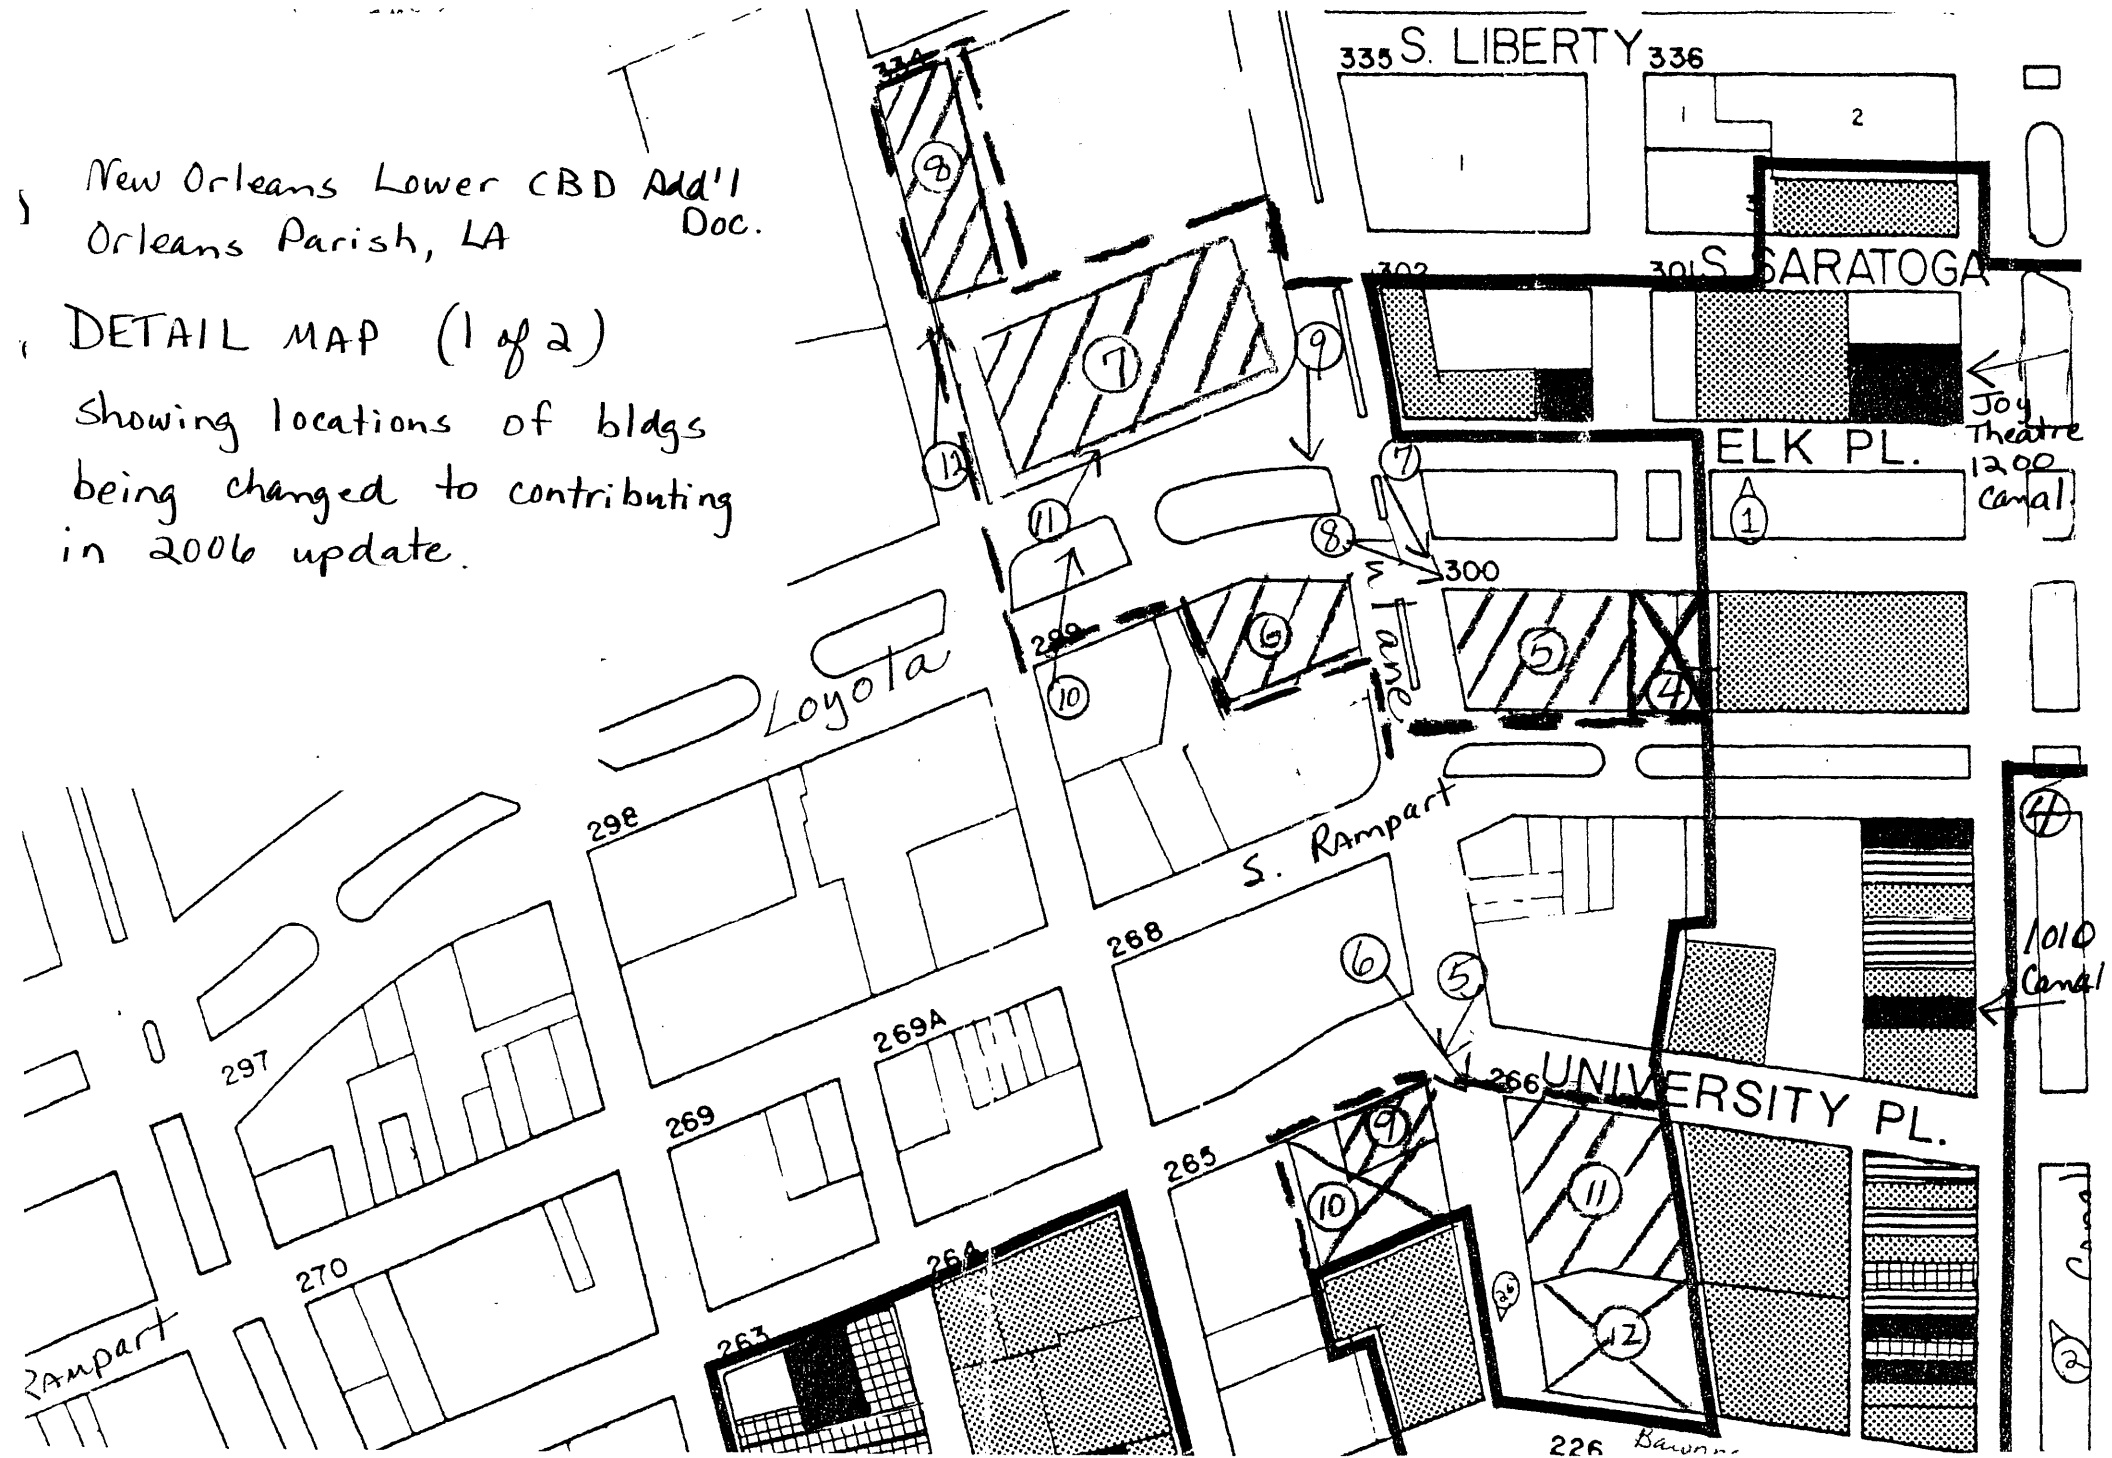 New Orleans Lower CBD Add'l
Doc.
Orleans Parish, LA
DETAIL MAP (1 of 2)
Showing locations of bldgs
being changed to contributing
in 2006 update.
335 S. LIBERTY 336
334
1
1
2
8
302
301 S. SARATOGA
7
9
Joy
Theatre
1200
Canal.
ELK PL.
12
7
11
8
1
300
299
6
5
4
10
Loyola
S. Rampart
4
298
268
1010
Canal
6
5
269A
297
266 UNIVERSITY PL.
269
9
265
10
11
264
270
26
12
263
Rampart
Canal
2
226